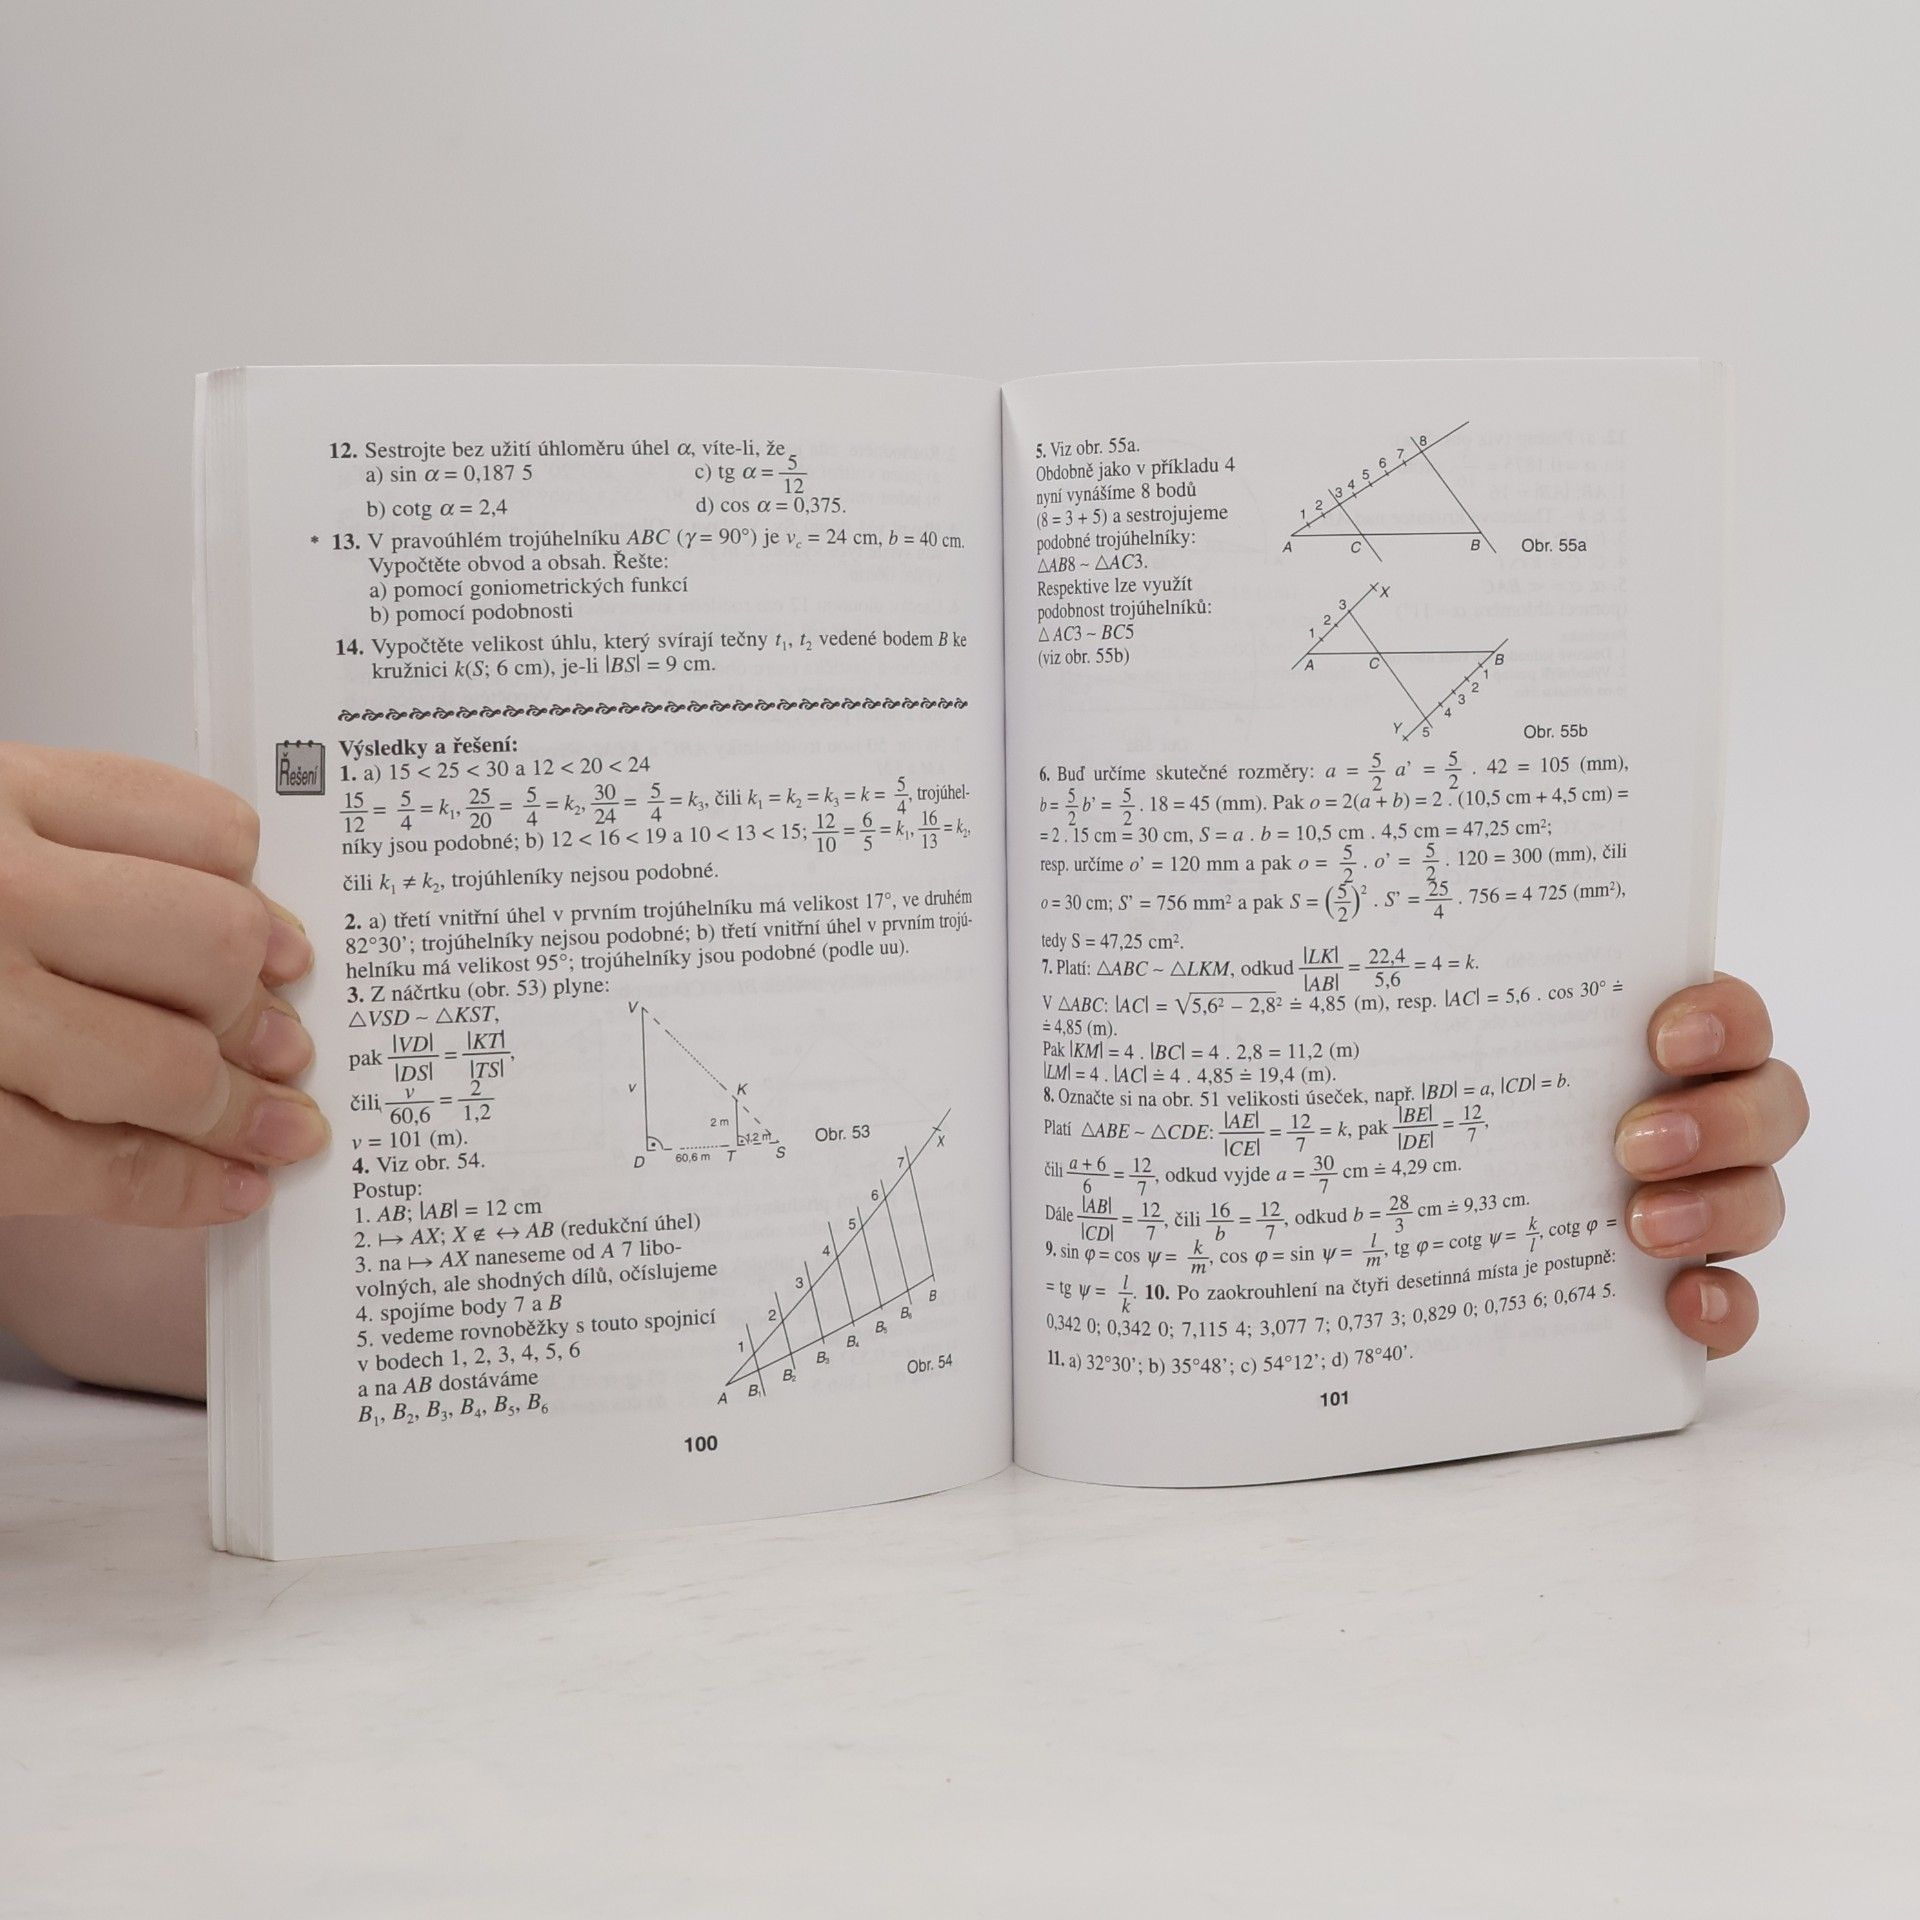 12. Sestrojte bez užití úhloměru úhel α, víte-li, že
a) sin α = 0,187 5 c) tg α = 5/12
b) cotg α = 2,4 d) cos α = 0,375.
* 13. V pravoúhlém trojúhelníku ABC (γ = 90°) je v_c = 24 cm, b = 40 cm.
Vypočtěte obvod a obsah. Řešte:
a) pomocí goniometrických funkcí
b) pomocí podobnosti
14. Vypočtěte velikost úhlu, který svírají tečny t₁, t₂ vedené bodem B ke
kružnici k(S; 6 cm), je-li |BS| = 9 cm.
Řešení
Výsledky a řešení:
1. a) 15 < 25 < 30 a 12 < 20 < 24
15/12 = 5/4 = k₁, 25/20 = 5/4 = k₂, 30/24 = 5/4 = k₃, čili k₁ = k₂ = k₃ = k = 5/4, trojúhel-
níky jsou podobné; b) 12 < 16 < 19 a 10 < 13 < 15; 12/10 = 6/5 = k₁, 16/13 = k₂,
čili k₁ ≠ k₂, trojúhleníky nejsou podobné.
2. a) třetí vnitřní úhel v prvním trojúhelníku má velikost 17°, ve druhém
82°30’; trojúhelníky nejsou podobné; b) třetí vnitřní úhel v prvním trojú-
helníku má velikost 95°; trojúhelníky jsou podobné (podle uu).
3. Z náčrtku (obr. 53) plyne:
△VSD ~ △KST,
pak |VD|/|DS| = |KT|/|TS|,
čili, v/60,6 = 2/1,2
v = 101 (m).
V
v
K
2 m
1,2 m
D 60,6 m T S
Obr. 53
4. Viz obr. 54.
Postup:
1. AB; |AB| = 12 cm
2. ↦ AX; X ∉ ↔ AB (redukční úhel)
3. na ↦ AX naneseme od A 7 libo-
volných, ale shodných dílů, očíslujeme
4. spojíme body 7 a B
5. vedeme rovnoběžky s touto spojnicí
v bodech 1, 2, 3, 4, 5, 6
a na AB dostáváme
B₁, B₂, B₃, B₄, B₅, B₆
A 1 2 3 4 5 6 7 X
B₁ B₂ B₃ B₄ B₅ B₆ B
Obr. 54
100
5. Viz obr. 55a.
Obdobně jako v příkladu 4
nyní vynášíme 8 bodů
(8 = 3 + 5) a sestrojujeme
podobné trojúhelníky:
△AB8 ~ △AC3.
Respektive lze využít
podobnost trojúhelníků:
△ AC3 ~ BC5
(viz obr. 55b)
1 2 3 4 5 6 7 8
A C B Obr. 55a
1 2 3 X
A C B
1 2 3 4 5 Y
Obr. 55b
6. Buď určíme skutečné rozměry: a = 5/2 a’ = 5/2 . 42 = 105 (mm),
b = 5/2 b’ = 5/2 . 18 = 45 (mm). Pak o = 2(a + b) = 2 . (10,5 cm + 4,5 cm) =
= 2 . 15 cm = 30 cm, S = a . b = 10,5 cm . 4,5 cm = 47,25 cm²;
resp. určíme o’ = 120 mm a pak o = 5/2 . o’ = 5/2 . 120 = 300 (mm), čili
o = 30 cm; S’ = 756 mm² a pak S = (5/2)² . S’ = 25/4 . 756 = 4 725 (mm²),
tedy S = 47,25 cm².
7. Platí: △ABC ~ △LKM, odkud |LK|/|AB| = 22,4/5,6 = 4 = k.
V △ABC: |AC| = √(5,6² – 2,8²) ≐ 4,85 (m), resp. |AC| = 5,6 . cos 30° ≐
≐ 4,85 (m).
Pak |KM| = 4 . |BC| = 4 . 2,8 = 11,2 (m)
|LM| = 4 . |AC| ≐ 4 . 4,85 ≐ 19,4 (m).
8. Označte si na obr. 51 velikosti úseček, např. |BD| = a, |CD| = b.
Platí △ABE ~ △CDE: |AE|/|CE| = 12/7 = k, pak |BE|/|DE| = 12/7,
čili a + 6/6 = 12/7, odkud vyjde a = 30/7 cm ≐ 4,29 cm.
Dále |AB|/|CD| = 12/7, čili 16/b = 12/7, odkud b = 28/3 cm ≐ 9,33 cm.
9. sin φ = cos ψ = k/m, cos φ = sin ψ = l/m, tg φ = cotg ψ = k/l, cotg φ =
= tg ψ = l/k. 10. Po zaokrouhlení na čtyři desetinná místa je postupně:
0,342 0; 0,342 0; 7,115 4; 3,077 7; 0,737 3; 0,829 0; 0,753 6; 0,674 5.
11. a) 32°30’; b) 35°48’; c) 54°12’; d) 78°40’.
101